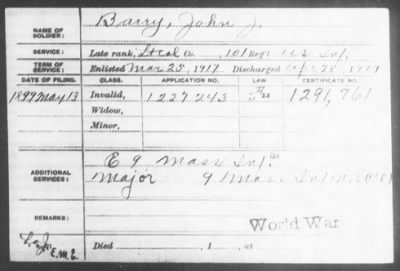 NAME OF SOLDIER: Barry, John J.
SERVICE: Late rank, Lt Col Co. , 101 Reg't U.S. Inf.
TERM OF SERVICE: Enlisted Mar 25, 1917 Discharged Apr 28, 1919
DATE OF FILING. CLASS. APPLICATION NO. LAW CERTIFICATE NO.
1899 May 13 Invalid, 1227243 1291,761
Widow,
Minor,
ADDITIONAL SERVICES: E 9 Mass Inf.
Major 9 Mass Inf
REMARKS: World War
E.M.E. Died , 1 , at